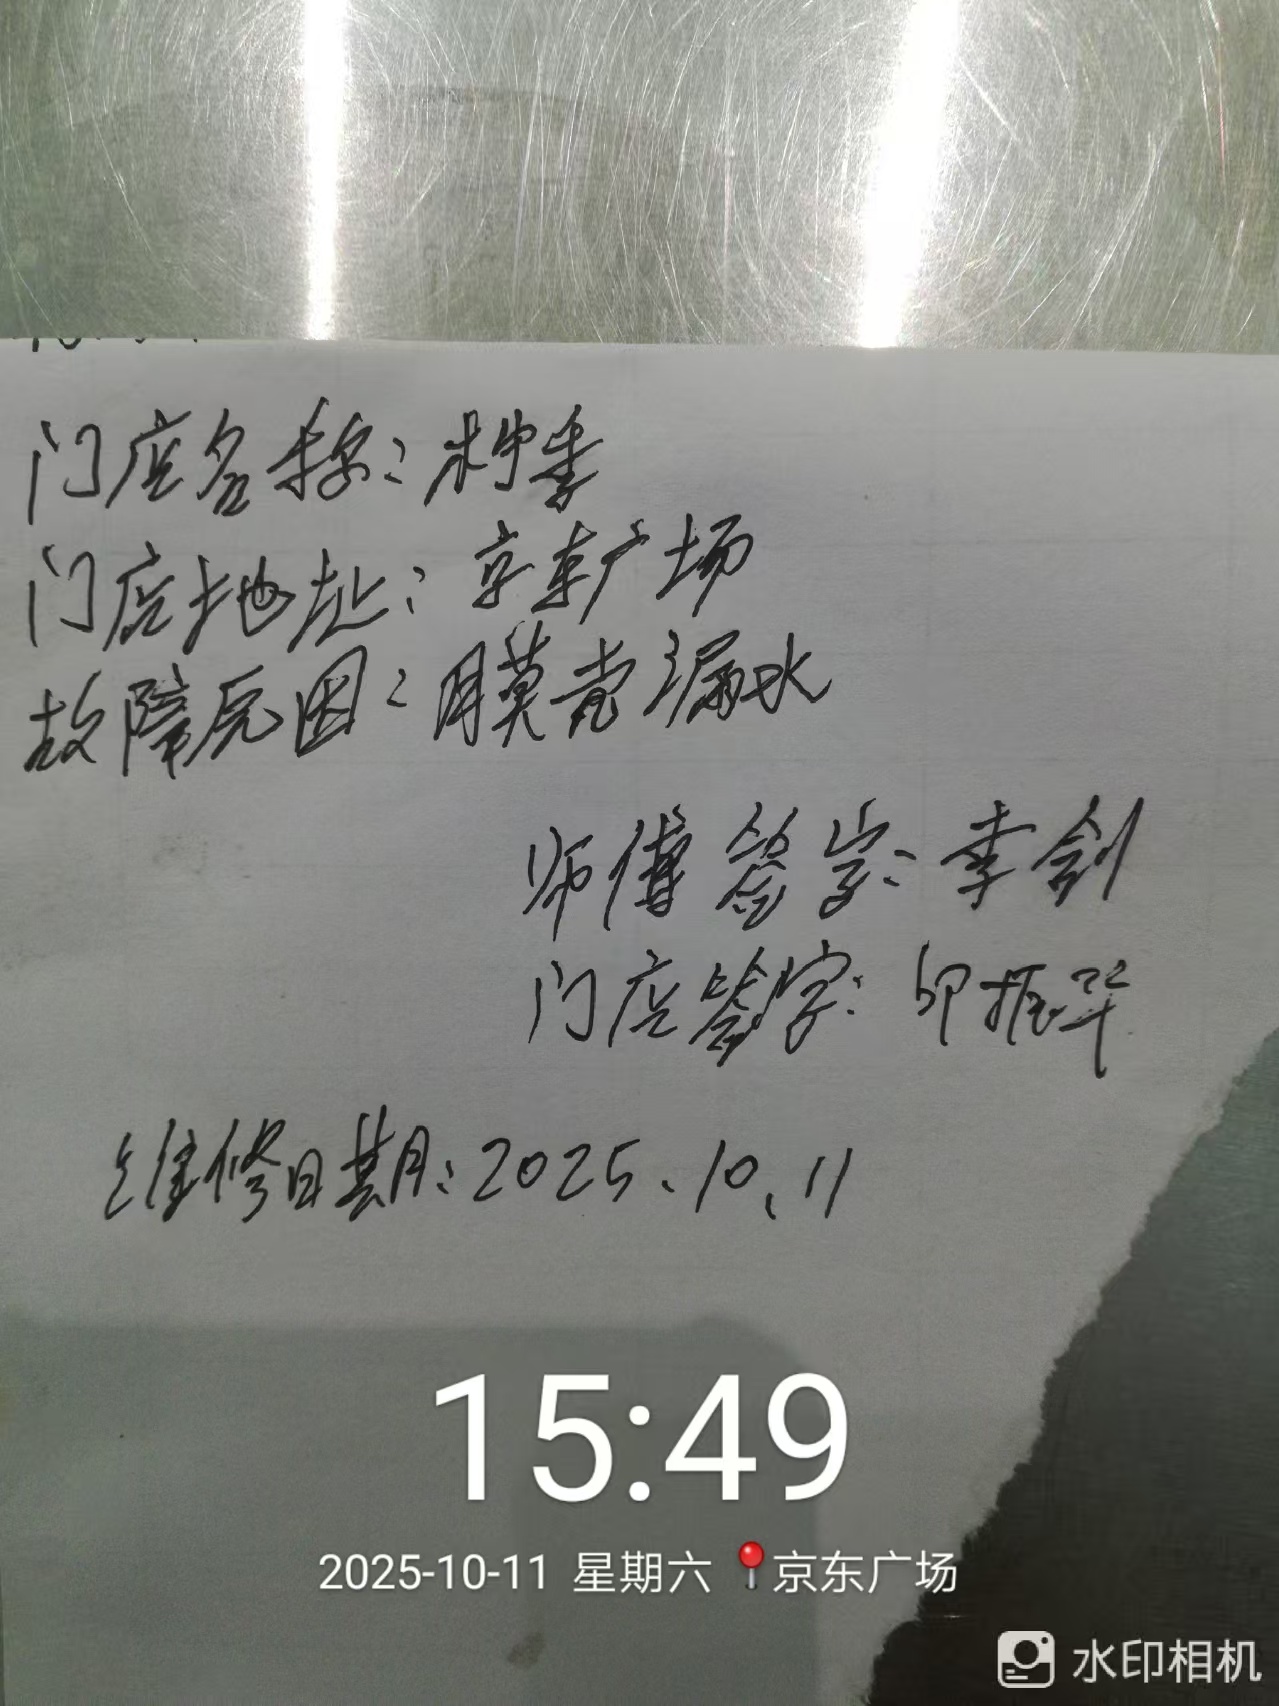 门店名称：柠季
门店地址：京东广场
故障原因：膜壳漏水
师傅签字：李剑
门店签字：邱振华
维修日期：2025.10.11
15:49
2025-10-11 星期六 京东广场
水印相机